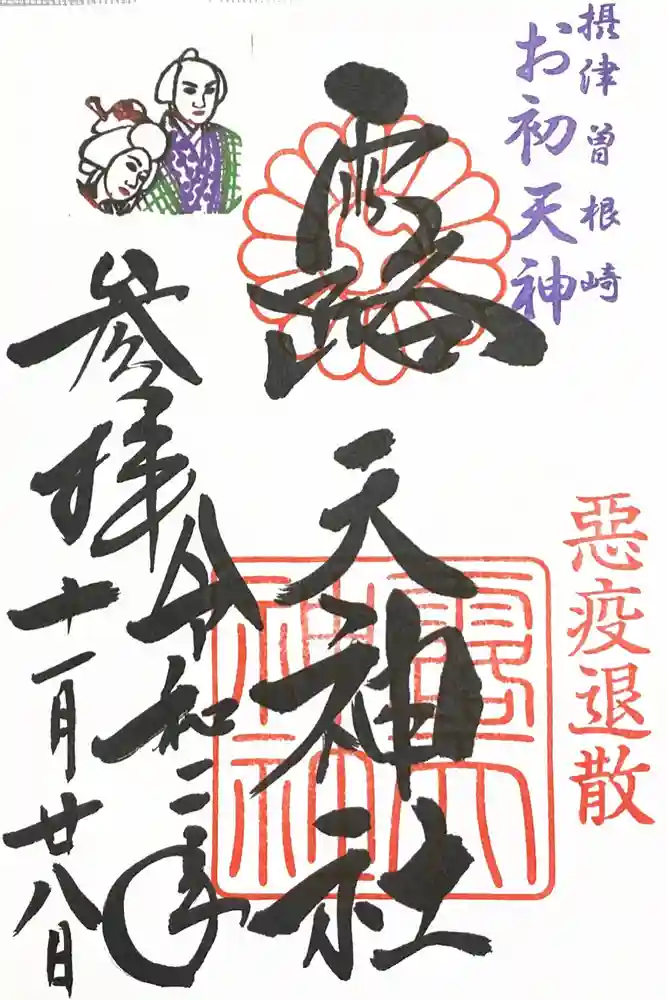 摂津曽根崎
お初天神
露天神社
惡疫退散
参拝
令和二年
十一月廿八日
露天神社